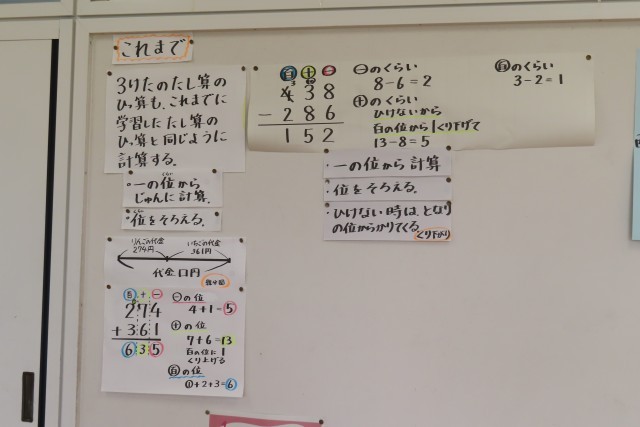 これまで
3けたのたし算の
ひっ算も、これまでに
学習したたし算の
ひっ算と同じように
計算する。
・一の位から
じゅんに計算。
・位をそろえる。
りんごの代金 いちごの代金
274円 361円
代金□円
百 十 一
274
+361
635
一の位
4+1=5
十の位
7+6=13
百の位に1
くり上げる
百の位
①+2+3=6
百 十 一
3 10
438
-286
152
一のくらい
8-6=2
十のくらい
ひけないから
百の位から1くり下げて
13-8=5
百のくらい
3-2=1
・一の位から計算
・位をそろえる。
・ひけない時は、となり
の位からかりてくる。
くり下がり